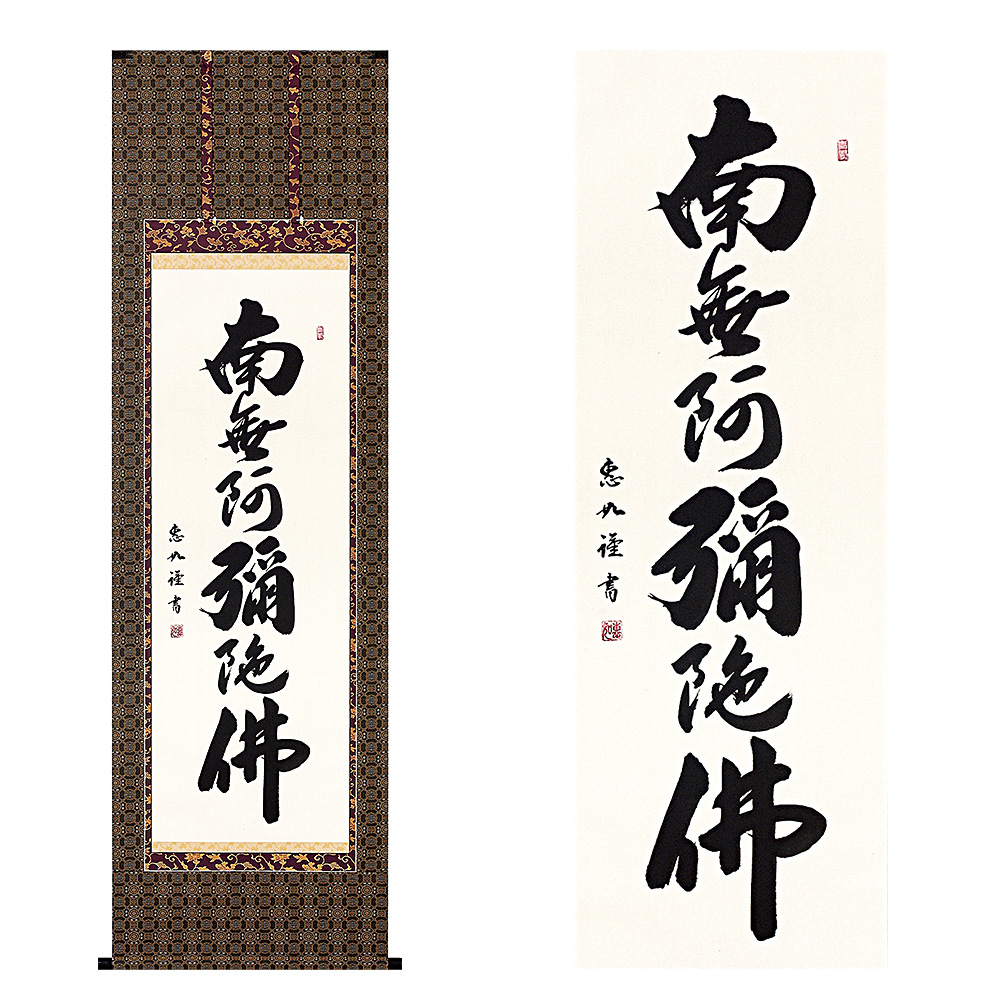 南無阿彌陀佛
恵如謹書
南無阿彌陀佛
恵如謹書